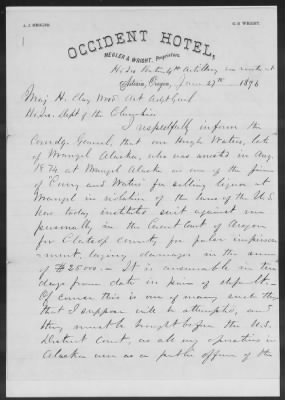 A. J. MEGLER.
C. S. WRIGHT.
OCCIDENT HOTEL,
MEGLER & WRIGHT, Proprietors.
Hd Qrs Batn 4th Artillery en route at
Astoria, Oregon, June 27th 1876
Maj H. Clay Wood Asst Adjt Genl
Hd Qrs. Dept of the Columbia
I respectfully inform the
Comdg General, that one Hugh Waters, late
of Wrangel Alaska, who was arrested in Aug.
1874 at Wrangel Alaska as one of the firm
of "Corry and Waters" for selling liquor at
Wrangel in violation of the laws of the U.S.
has today instituted suit against me
personally in the Circuit Court of Oregon
for Clatsop County for false imprison
ment, laying damages in the sum
of $25000.– It is answerable in ten
days from date in pain of default.–
Of course this is one of many such things
that I suppose will be attempted, and
they must be brought before the U.S.
District Court, as all my operations in
Alaska were as a public officer of the